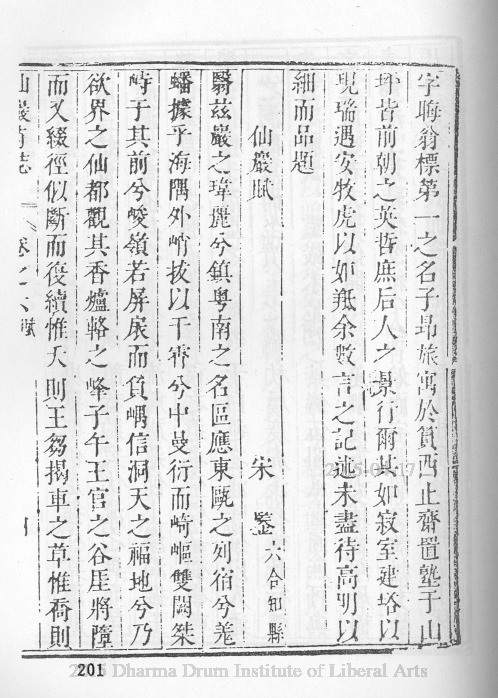 字晦翁標第一之名子昂旅寓於筼西止齋置塾于山
坪皆前朝之英哲庶后人之景行爾其如寂室建塔以
現瑞遇安牧虎以如羝余數言之記述未盡待高明以
細而品題
仙巖賦 宋鑒 六合知縣
翳茲巖之瑋麗兮鎮粤南之名區應東甌之列宿兮羌
蟠據乎海隅外峭拔以干霄兮中曼衍而崎嶇雙闕桀
峙于其前兮峻嶺若屏扆而負嵎信洞天之福地兮乃
欲界之仙都觀其香爐輅之峰子午王官之谷厓將墮
而又綴徑似斷而復續惟夭則王芻揭車之草惟喬則
仙巖寺志 卷之六 賦
201
2006 Dharma Drum Institute of Liberal Arts